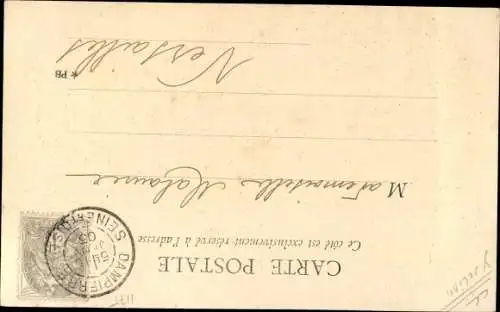 CARTE POSTALE
Ce côté est exclusivement réservé à l'adresse
Mademoiselle
Versailles
★ PB
DAMPIERRE
SEINE-ET-OISE
05